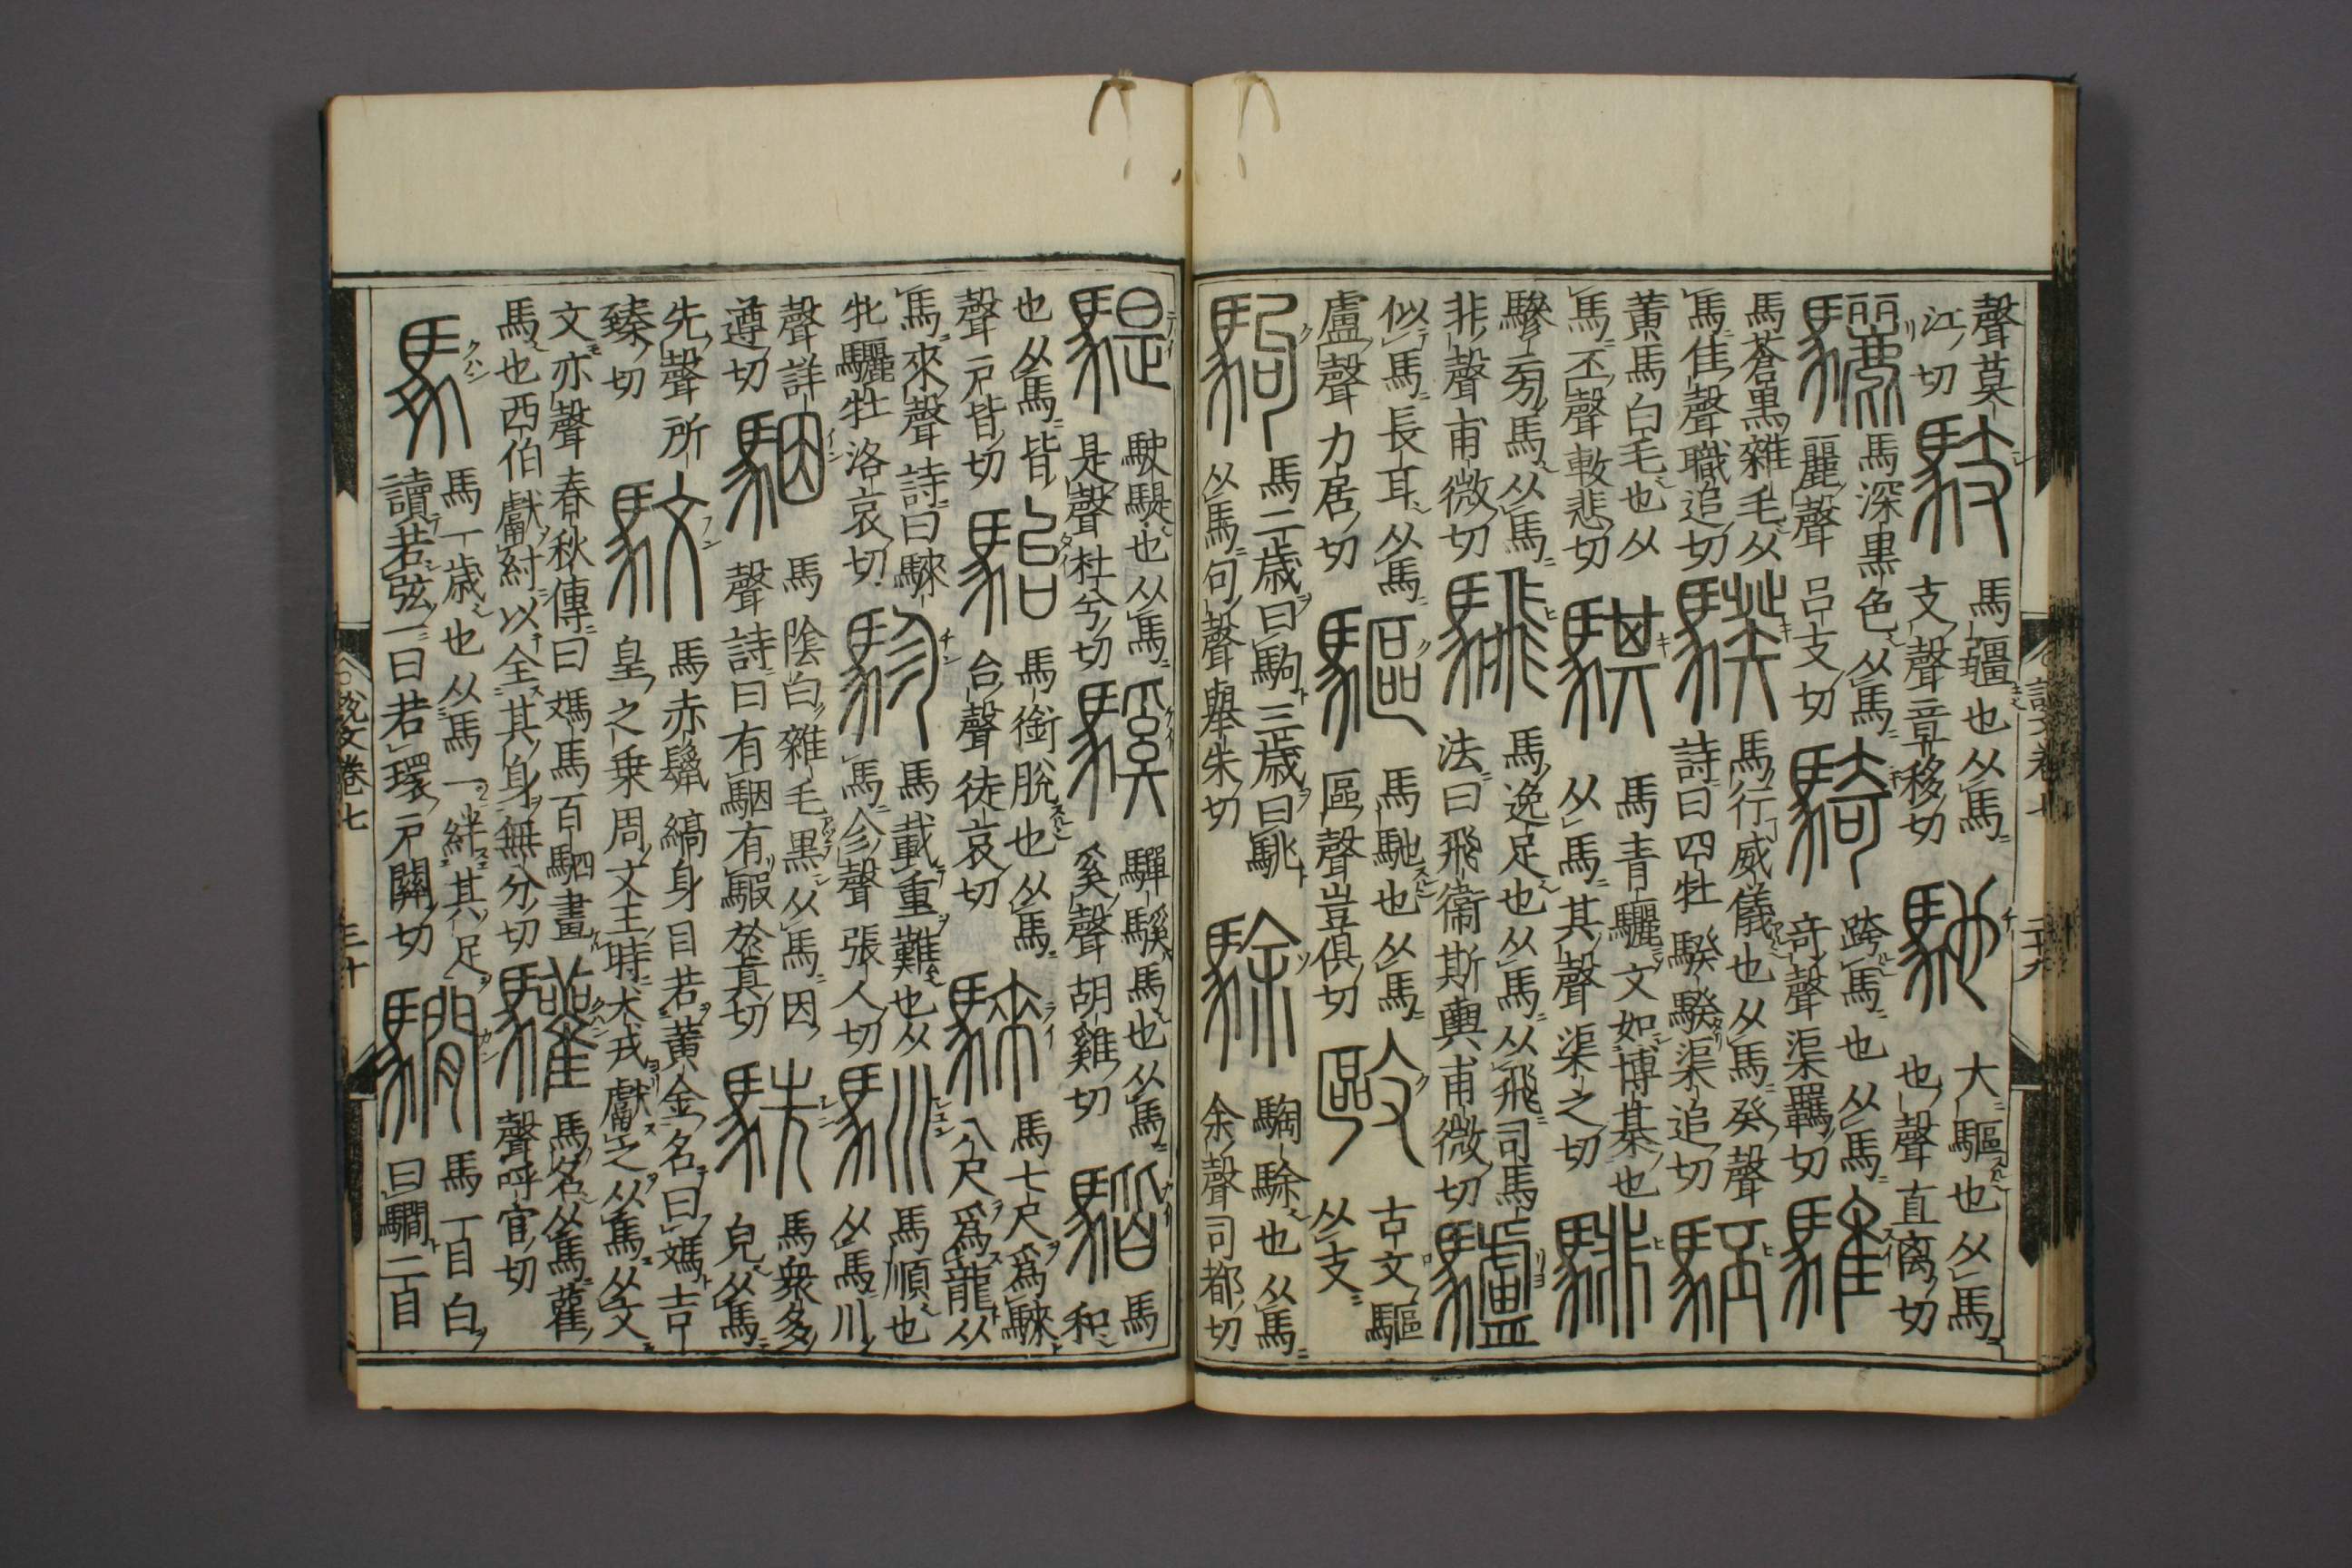 說文卷七 二十九
聲莫
江切
馶
馬彊也从馬
支聲章移切
馳
大驅也从馬
也聲直离切
驪
馬深黒色从馬
麗聲呂支切
騎
跨馬也从馬
奇聲渠羈切
騅
馬蒼黒雜毛从
馬隹聲職追切
騤
馬行威儀也从馬癸聲
詩曰四牡騤騤渠追切
駓
黃馬白毛也从
馬丕聲敷悲切
騏
馬青驪文如博棊也
从馬其聲渠之切
騑
驂旁馬从馬
非聲甫微切
騛
馬逸足也从馬从飛司馬
法曰飛衞斯輿甫微切
驢
似馬長耳从馬
盧聲力居切
驅
馬馳也从馬
區聲豈俱切
敺
古文驅
从攴
駒
馬二歲曰駒三歲曰駣
从馬句聲舉朱切
駼
騊駼也从馬
余聲司都切
騠
駃騠也从馬
是聲杜兮切
騱
驒騱馬也从馬
奚聲胡雞切
馬
和
也从馬皆
聲戶皆切
駘
馬銜脫也从馬
台聲徒哀切
騋
馬七尺爲騋
八尺爲龍从
馬來聲詩曰騋
牝驪牡洛哀切
駗
馬載重難也从
馬㐱聲張人切
馴
馬順也
从馬川
聲詳
遵切
駰
馬陰白雜毛黒从馬因
聲詩曰有駰有騢於真切
駪
馬衆多
皃从馬
先聲所
臻切
馼
馬赤鬣縞身目若黃金名曰媽吉
皇之乗周文王時犬戎獻之从馬从文
文亦聲春秋傳曰媽馬百駟畫
馬也西伯獻紂以全其身無分切
驩
馬名从馬雚
聲呼官切
𩡧
馬一歲也从馬一絆其足
讀若弦一曰若環戶關切
𩦂
馬一目白
曰𩦂二目
說文卷七 三十